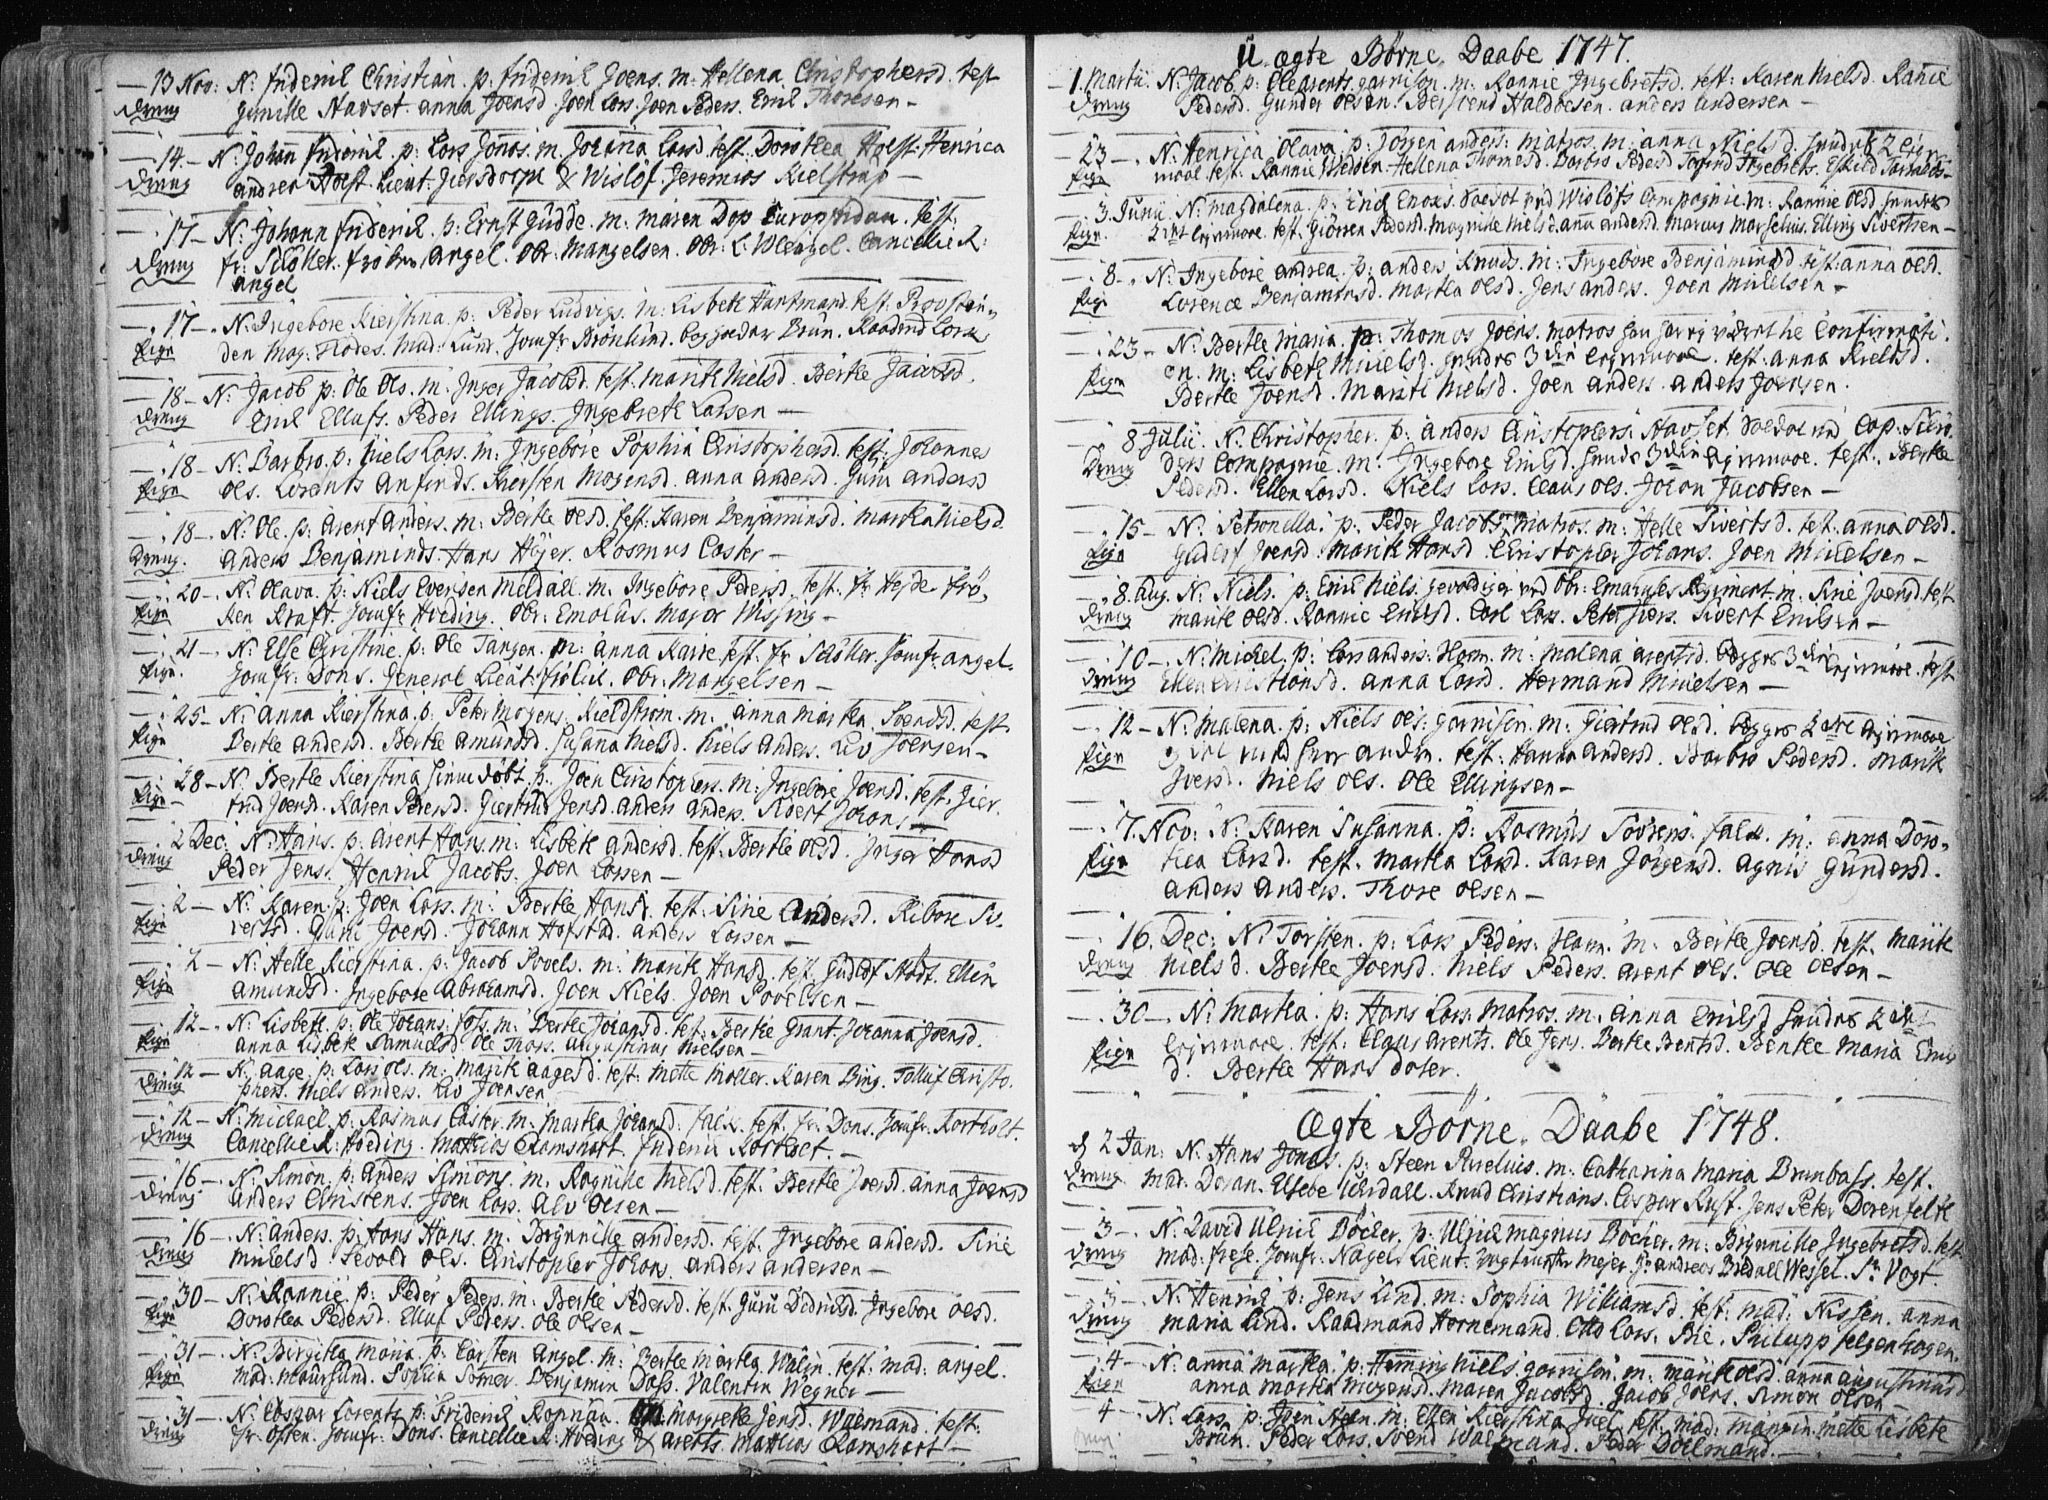 13 Nov: N: Friderich Christian. p: Friderich Joens. m: Hellena Christophersd. test
Dreng Gunille Havset. anna Joensd. Joen Lars. Joen Peders. Erich Thoresen —
14 — N: Johan Friderich. p: Lars Jonas. m. Johanna Larsd. test. Dorothea Holst. Henrica
Dreng andrea Holst. Lieut: & Wisløf. Jeremias Kielstrup —
17 — N: Johann Friderich. p: Ernst Gudde. m: maren Dop test.
Dreng fr: Schøller. frøken Angel. Obr: Mangelsen. Obr: L: Cancellie R:
angel
17 — N: Ingebore Kierstina. p: Peder Ludvigs. m: Lisbeth Hartmand. test. Provstin-
Pige den Mag: Flodes. Mad: Lund. Jomfr: Brønlund. Brun. Raadmd Lorck
18 — N: Jacob p: Ole Ols. m: Inger Jacobsd. test. marith Nielsd. Berthe
Dreng Erich Ellufs. Peder Ellings. Ingebreth Larsen —
18 — N: Barbro. p: Niels Lars. m: Ingebore Sophia Christophersd. test: Johannes
Pige Ols. Lorents anfinds. Kiersten Mogensd. anna andersd. Guru andersd
18 — N: Ole. p: Arent Anders. m: Berthe Olsd. test: Karen Benjaminsd. martha Nielsd.
Dreng. Anders Benjaminds. Hans Høyer. Rasmus Caster —
20 — N: Olava. p: Niels Eversen Meldall. m. Ingebore Pedersd. test. fr: Hejde. frø-
Pige ken Kraft. Jomfr Hveding. Obr: Emahus. Major Wissing —
21 — N: Else Christine. p: Ole Tangen. m: anna Karie. test. fr Schøller. Jomfr: angel.
Pige. Jomfr: Dons. General Lieut: frølich. Obr: Mangelsen —
25 — N: Anna Kierstina. p: Peter Mogens. Kieldstrøm. m. anna martha Svendsd. test
Pige Berthe andersd. Berthe amundsd. Susanna Nielsd. Niels Anders. Liv Joensen —
28 — N: Berthe Kierstina hiemedøbt. p. Joen Christophers. m: Ingebore Joensd. test. Gier-
Pige — trud Joensd. Karen Pedersd. Giertrud Jensd. anders anders. Sivert Johans. —
2 Dec: N: Hans. p. arent Hans. m: Lisbeth andersd. test: Berthe Olsd. Inger Hansd
Dreng Peder Jens. Henrich Jacobs. Joen Larsen —
2 — N: Karen. p: Joen Lars. m: Berthe Hansd. test: Sirie Andersd. Ribore Si-
Pige vertsd. Guru Joensd. Johann Hofstad. anders Larsen —
2 — N: Helle Kierstina. p: Jacob Povels. m: Marith Hansd. test. Gudlof Ellen
Pige amundsd. Ingebore Abrahamsd. Joen Niels. Joen Povelsen —
12 — N: Lisbeth. p: Ole Johans: m: Berthe Johansd. test: Berthe Grant. Johanna Joensd.
Pige anna Lisbeth Samuelsd. Ole Thors. Augustinus Nielsen —
12 — N: Aage. p: Lars ols. m: marith aagesd. test: Mette Møller. Karen Bing. Tolluf Christo-
Dreng phers. Niels anders. Liv Joensen
12 — N: Michael. p: Rasmus Caster. m: Martha Johansd. falck. test. fr: Dons. Jomfr. Kortholt.
Dreng Cancellie R: Hveding. Mathias Ramshart. Friderich Kortholt. —
16 — N: Simon. p: Anders Simons. m. Ragnilhe Nielsd. test: Berthe Joensd. anna Joensd
Dreng anders Christens. Joen Lars. Alv Olsen —
16 — N: Anders. p: Hans Hans. m. Brynnilhe andersd. test. Ingebore andersd. Sirie
Dreng Michelsd. Sevald Ols. Christopher Johans. Anders andersen —
30 — N: Rannie p: Peder Peders. m: Berthe Pedersd. test. Guru Didrichsd. Ingebore olsd.
Pige Dorothea Pedersd. Elluf Peders. Ole Olsen —
31 — N: Birgitha maria. p: Carsten Angel. m: Berthe Martha Walin. test. mad: angel.
Pige mad: maursund. Sophia Sømer. Benjamin Dass. Valentin Wegner —
31 — N: Caspar Lorents p: Friderich Ronnau. margrethe Jensd. Waemand. test.
Dreng fr. Osten. Jomfr: Dons. Cancellie R: Hveding & Arents. Mathias Ramshart —
U. ægte Børne. Daabe 1747.
1. Martii. N: Jacob. p: Clearents. garnison. m: Rannie Ingebretsd. test: Karen Nielsd. Ranie
Dreng Pedersd. Gunder Olsen. Haldoesen. anders andersen —
23 — N: Henrica Olava. p: Jørgen anders: Matros. m: anna Nielsd. hendes 2
Pige test: Rannie Welden. Hellena Thomesd. Barbro Pedersd. Ingebrets. Eskild
3 Junii. N: Magdalena. p: Erich Enoks. Soldat ved Wisløfs Compagnie. m: Rannie Olsd hendes
Pige. 2det leyermaae. test. Giøren Pedersd. Magnilhe Nielsd. anna andersd. Marcus Marselius. Elling Sivertsen —
8 — N: Ingebore andrea. p: anders Knuds. m: Ingebore Benjaminsd. test: anna Olsd.
Pige Lorence Benjaminsd. Martha Olsd. Jens anders. Joen Michelsen. —
23 — N: Berthe Maria. p: Thomas Joens. Matros Confirmati-
Pige en. m: Lisbeth Nielsd. hendes 3die leyermaae. test: anna Kieldsd.
Berthe Joensd. Mariti Nielsd. Joen anders. anders Joensen.
8 Julii. N: Christopher. p: anders Christophers: Havset. Soldat ved Cap: Schrø-
Dreng ders Compagnie. m: Ingebore Erichsd. hendes 3die leyermaae. test. Berthe
Pedersd. Ellen Larsd. Niels Lars. Claus Ols. Johan Jacobsen —
15 — N: Petronella. p: Peder Jacobs. Matros. m: Helle Sivertsd. test. anna Olsd.
Pige Gudlof Joensd. Marith Hansd. Christopher Johans. Joen Michelsen —
8. Aug. N: Niels. p: Erich Niels. gevaldiger ved Obr: Emahuses Regiment. m: Sirie Joensd. test
Dreng Marith Olsd. Rannie Erichsd. Carl Lars. Peter Ivers. Sivert Erichsen —
10 — N: Michel. p: Lars anders: Horn. m: Malena arentsd. begges 3die leyermaae. test
Dreng Ellen Christiansd. anna Larsd. Hermand Michelsen —
12 — N: Malena. p: Niels Ols: garnison. m: Giertrud Olsd. begges 2det leyermaae
Pige med hver anden. test. Hanna andersd. Barbro Pedersd. Marith
Iversd. Niels Ols. Ole Ellingsen —
7. Nov: N: Karen Susanna. p: Rasmus Sørens. falck. m: anna Doro-
Pige thea Larsd. test. Martha Larsd. Karen Jørgensd. Agnis Gundersd.
Anders Anders. Thore Olsen —
16. Dec: N: Torsten. p: Lars Peders: Horn. m: Berthe Joensd. test. Marith
Dreng Nielsd. Berthe Joensd. Niels Peders. Arent Ols. Ole Olsen —
30 — N: Martha. p: Hans Lars. Matros. m. Anna Erichsd hendes 2det
Pige leyermaae. test: Claus Arents. Ole Jens. Berthe Bentsd. Benthe Maria Erichs
d. Berthe Hans doter.
Ægte Børne. Daabe 1748.
d 2 Jan: N: Hans Jonas. p: Steen m: Catharina Maria Brunbass. test.
Dreng mad: Doran. Elsebe Uhrdall. Knud Christians. Caspar Rust. Jens Peter Dorenfeldt
3 — N: David Ulrich Bøcher. p: Ulrich Magnus Bøcher. m: Brynnilhe Ingebretsd. test.
Dreng mad: frese. Jomfr: Nagels. Lieut. Mejer. Sr andreas Bredall Wessel. Sr Vogt —
3 — N: Henrich p: Jens Lind. m: Sophia Williamsd. test: Mad: Nissen. anna
Dreng maria Lind. Raadmand Hornemand. Otto Lars. Bie. Philipp felgenhagen.
4 — N: anna martha. p: Heming Niels. garnison. m: Marith olsd. anna augustinusd
Pige anna Martha Mogensd. Maren Jacobsd. Jacob Joens. Simon Olsen —
4 — N: Lars. p: Joen Steen. m: Ellen Kierstina Juel. test. mad: mette Lisbeth
Brun. Peder Lars. Svend Waemand. Peder —